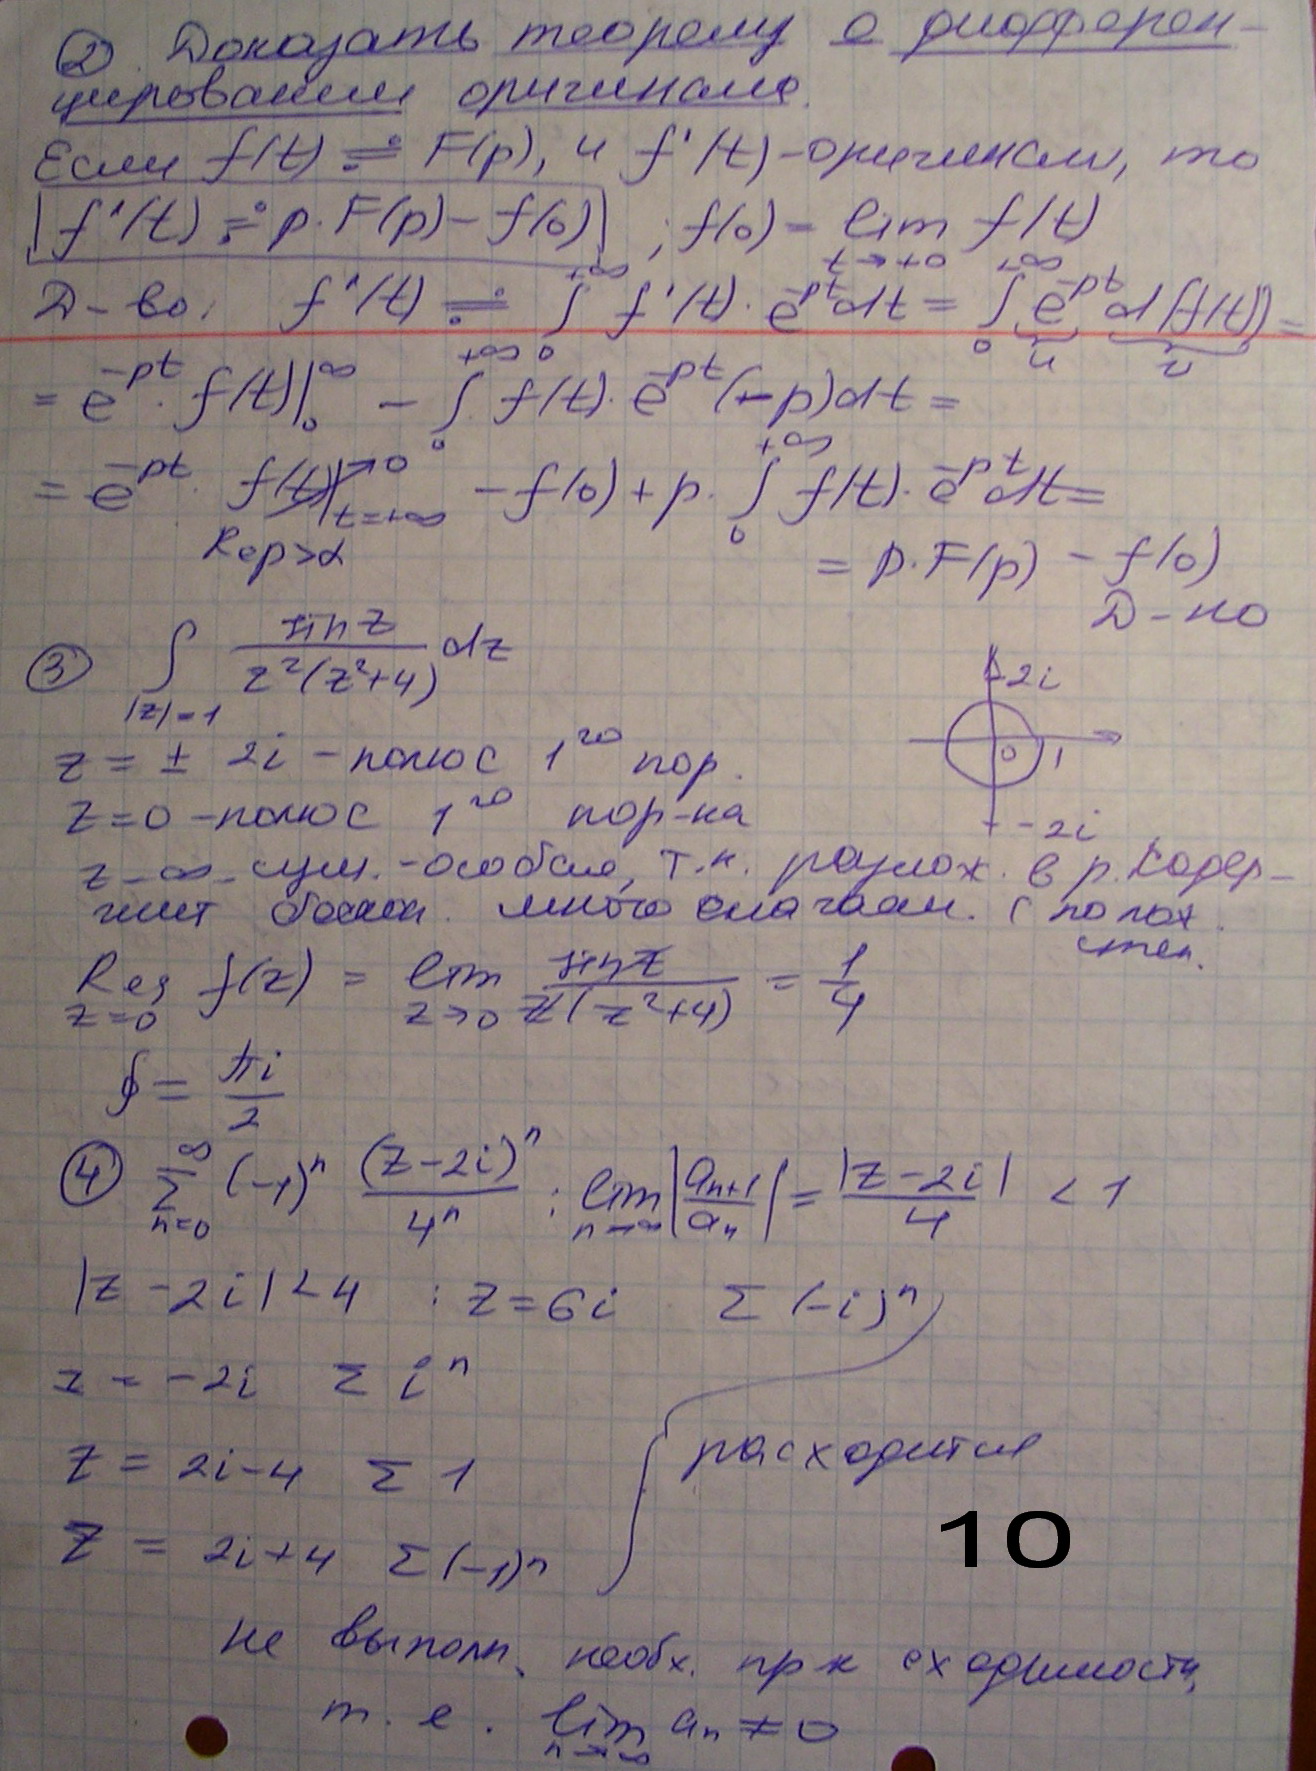 ② Доказать теорему о дифферен-
цировании оригинала.
Если f(t) ≓ F(p), и f'(t)-оригинал, то
f'(t) ≓ p·F(p) - f(0) ; f(0) - lim f(t)
t→+0
Д-во: f'(t) ≓ ∫₀^{+∞} f'(t)·e^{-pt}dt = ∫₀^{+∞} e^{-pt} d(f(t)) =
u v
= e^{-pt}·f(t)|₀^∞ - ∫₀^{+∞} f(t)·e^{-pt}(-p)dt =
= e^{-pt}·f(t)|_{t=+∞} →0 - f(0) + p·∫₀^{+∞} f(t)·e^{-pt}dt =
Re p>α = p·F(p) - f(0)
Д-но
③ ∫_{|z|=1} sin z / z²(z²+4) dz
2i
0 1
-2i
z = ± 2i - полюс 1го пор.
z=0 - полюс 1го пор-ка
z-∞- сущ.-особая, т.к. разлож. в р. содер-
жит бескон. много слагаем. с полож.
степ.
Res_{z=0} f(z) = lim_{z→0} sin z / z(z²+4) = 1/4
∮ = πi/2
④ Σ_{n=0}^{∞} (-1)ⁿ (z-2i)ⁿ/4ⁿ ; lim_{n→∞} |a_{n+1}/a_n| = |z-2i|/4 < 1
|z-2i|<4 : z=6i Σ(-i)ⁿ
z = -2i Σ iⁿ
z = 2i-4 Σ 1
расходится
z = 2i+4 Σ(-1)ⁿ
10
не выполн. необх. пр-к сходимости,
т.е. lim_{n→∞} a_n ≠ 0